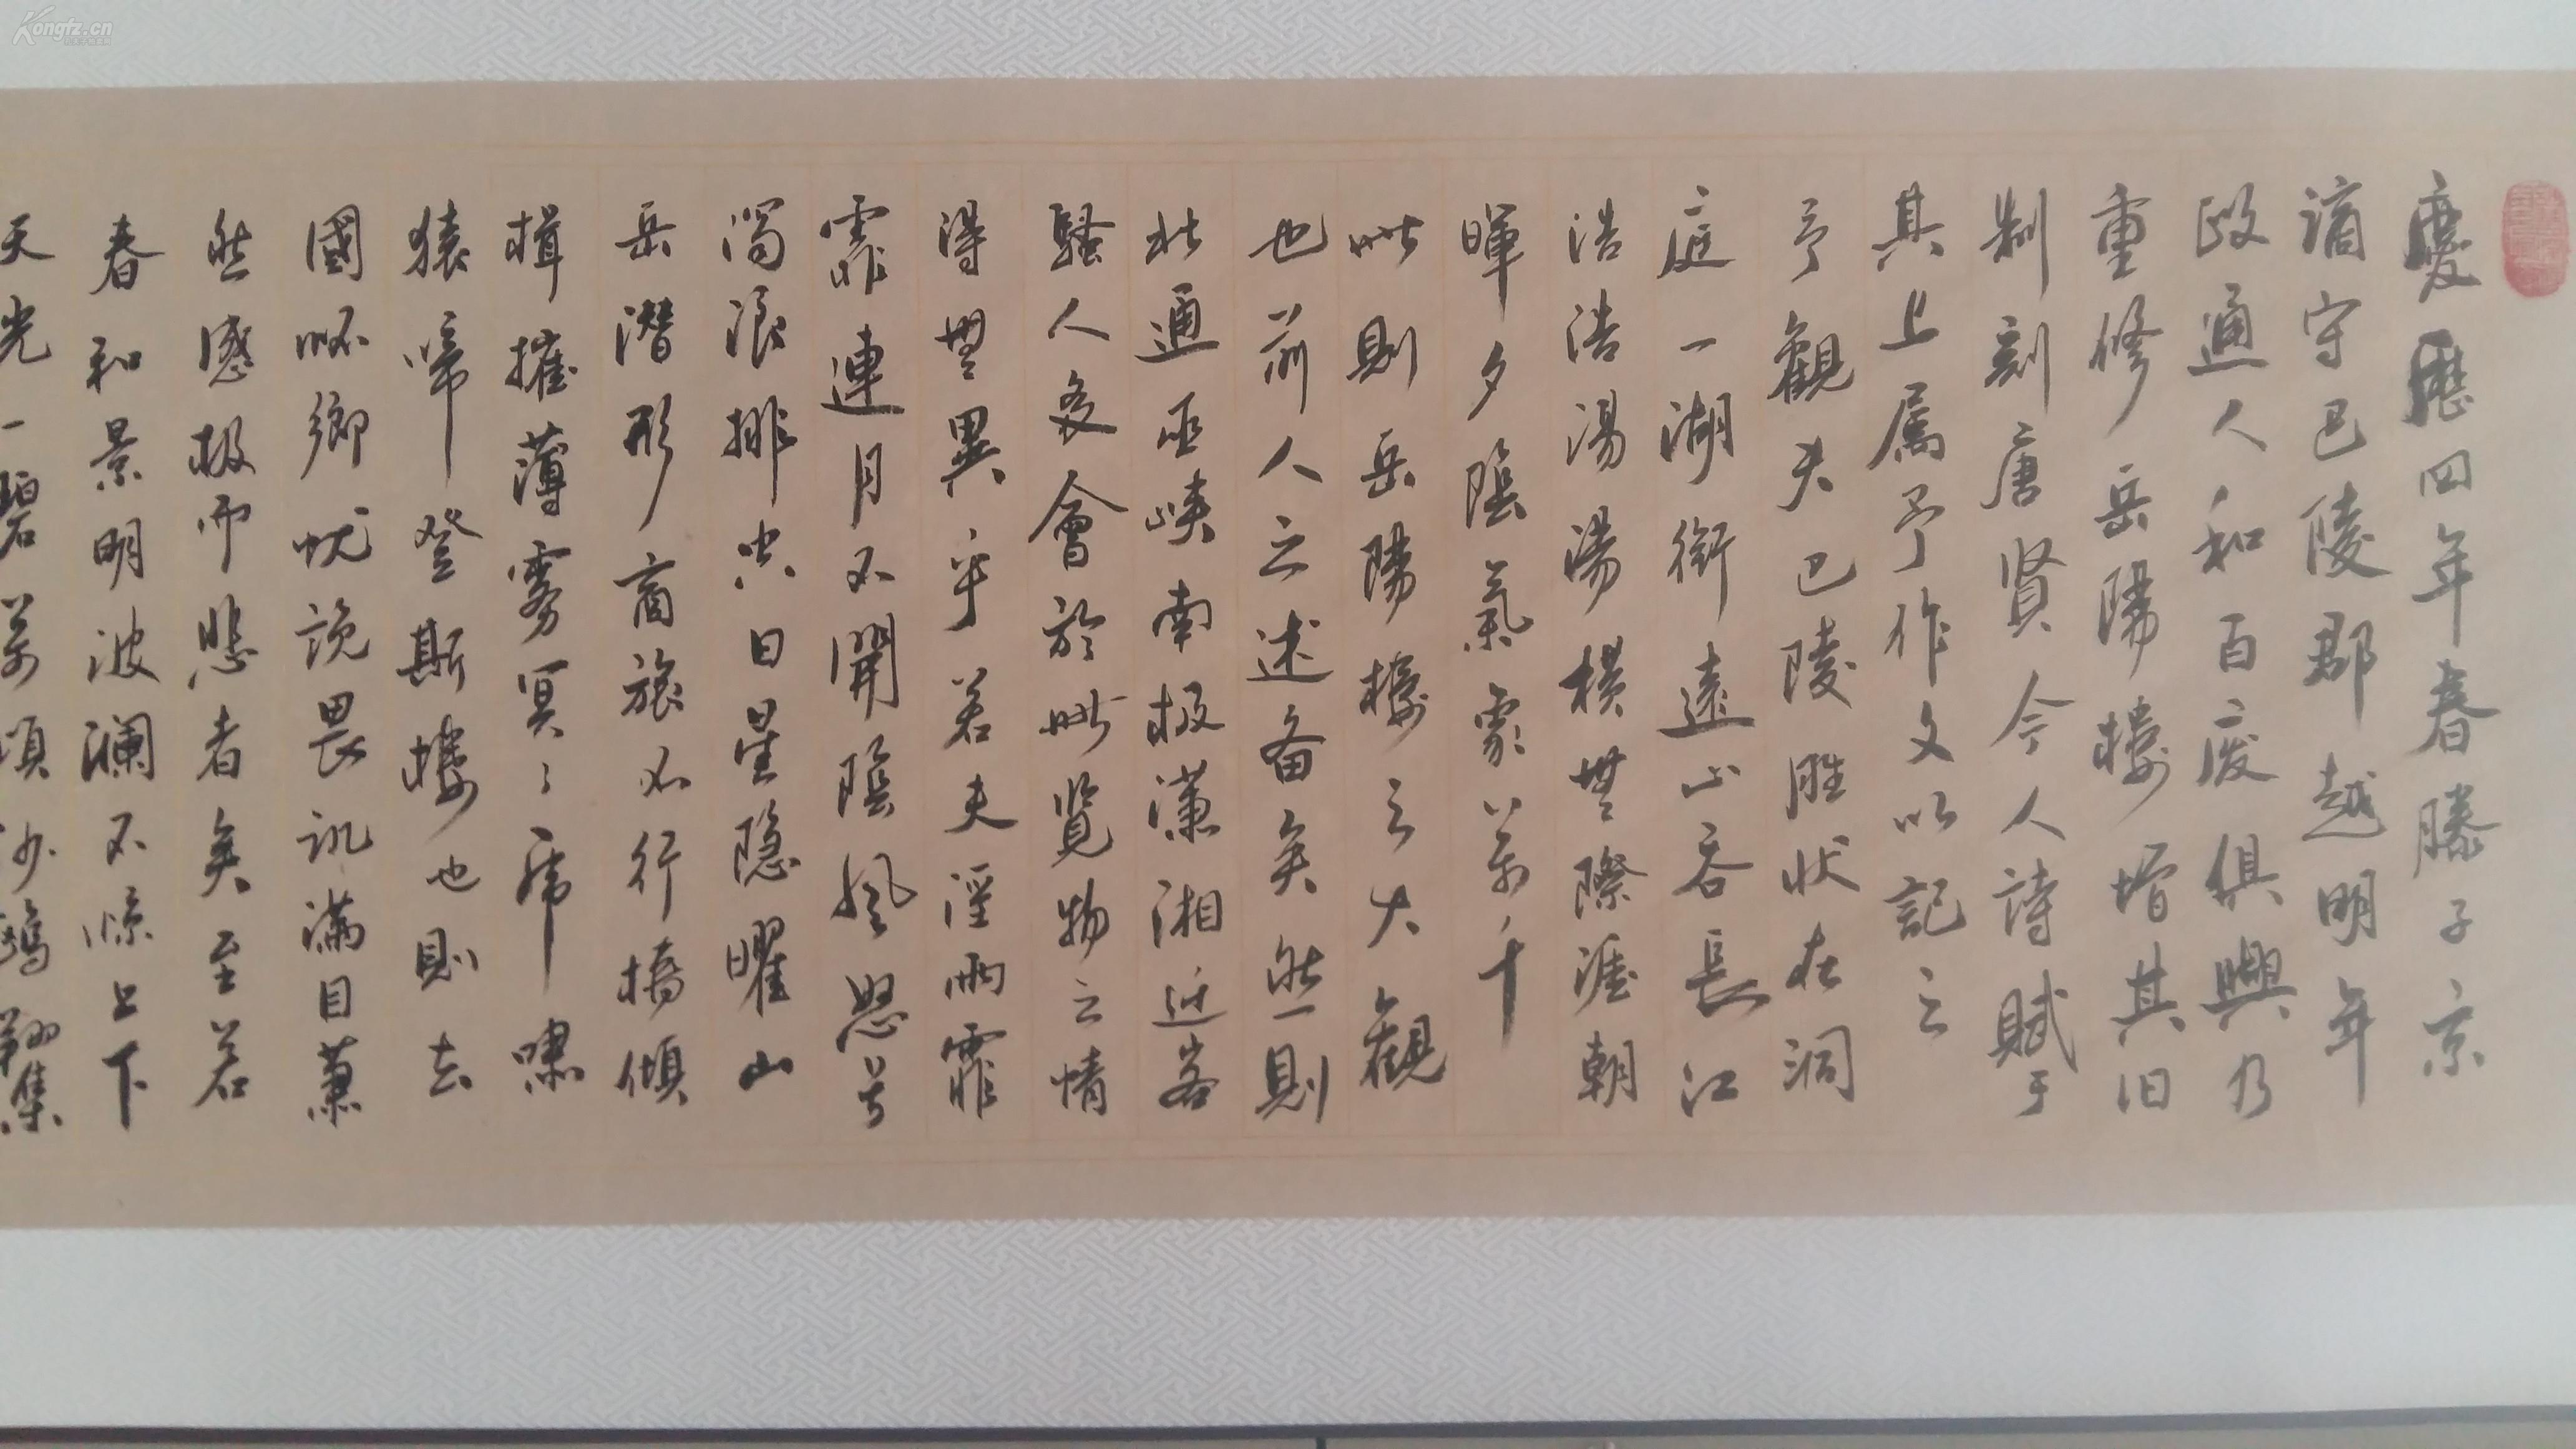 慶歷四年春滕子京
謫守巴陵郡越明年
政通人和百廢俱興乃
重修岳陽樓增其旧
制刻唐賢今人詩賦于
其上属予作文以記之
予觀夫巴陵胜状在洞
庭一湖銜遠山吞長江
浩浩湯湯橫無際涯朝
暉夕陰氣象萬千
此則岳陽樓之大觀
也前人之述备矣然則
北通巫峽南极瀟湘迁客
騷人多會於此览物之情
得無異乎若夫淫雨霏
霏連月不開陰風怒号
濁浪排空日星隐曜山
岳潜形商旅不行檣傾
楫摧薄雾冥々虎嘯
猿啼登斯樓也則去
國怀鄉忧讒畏讥滿目蕭
然感极而悲者矣至若
春和景明波澜不惊上下
天光一碧萬頃沙鷗翔集
Kongfz.cn